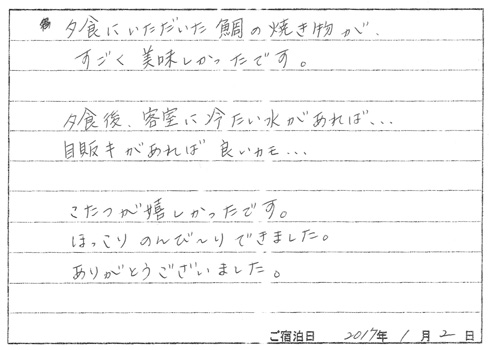 夕食にいただいた鯛の焼き物が、
すごく美味しかったです。
夕食後、客室に冷たい水があれば、、、
自販キがあれば良いかも、、、
こたつが嬉しかったです。
ほっこりのんび～りできました。
ありがとうございました。
ご宿泊日 2017年 1月 2日